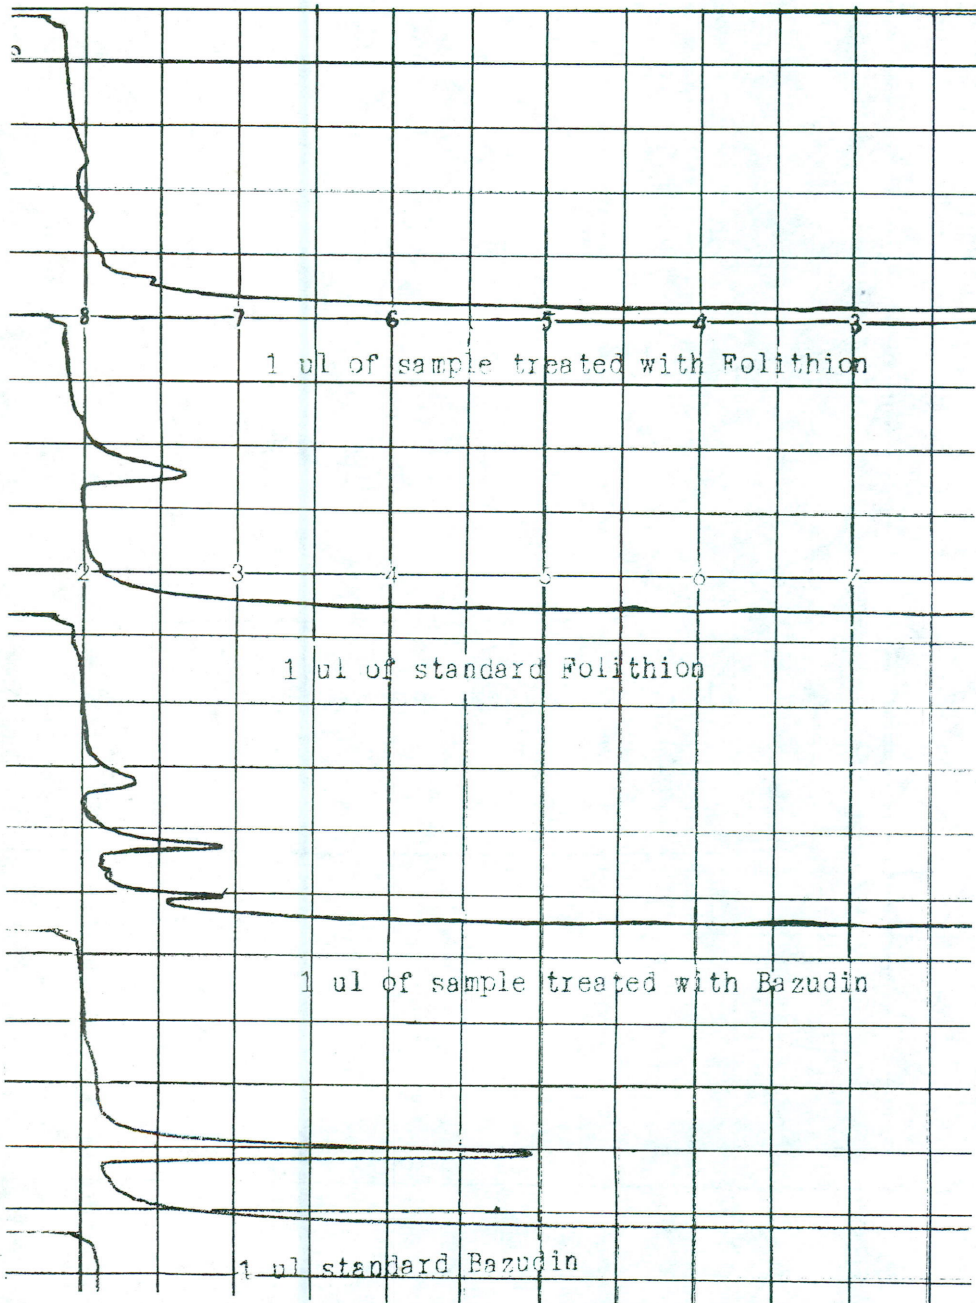 8 7 6 5 4 3
1 ul of sample treated with Folithion
2 3 4 5 6 7
1 ul of standard Folithion
1 ul of sample treated with Bazudin
1 ul standard Bazudin